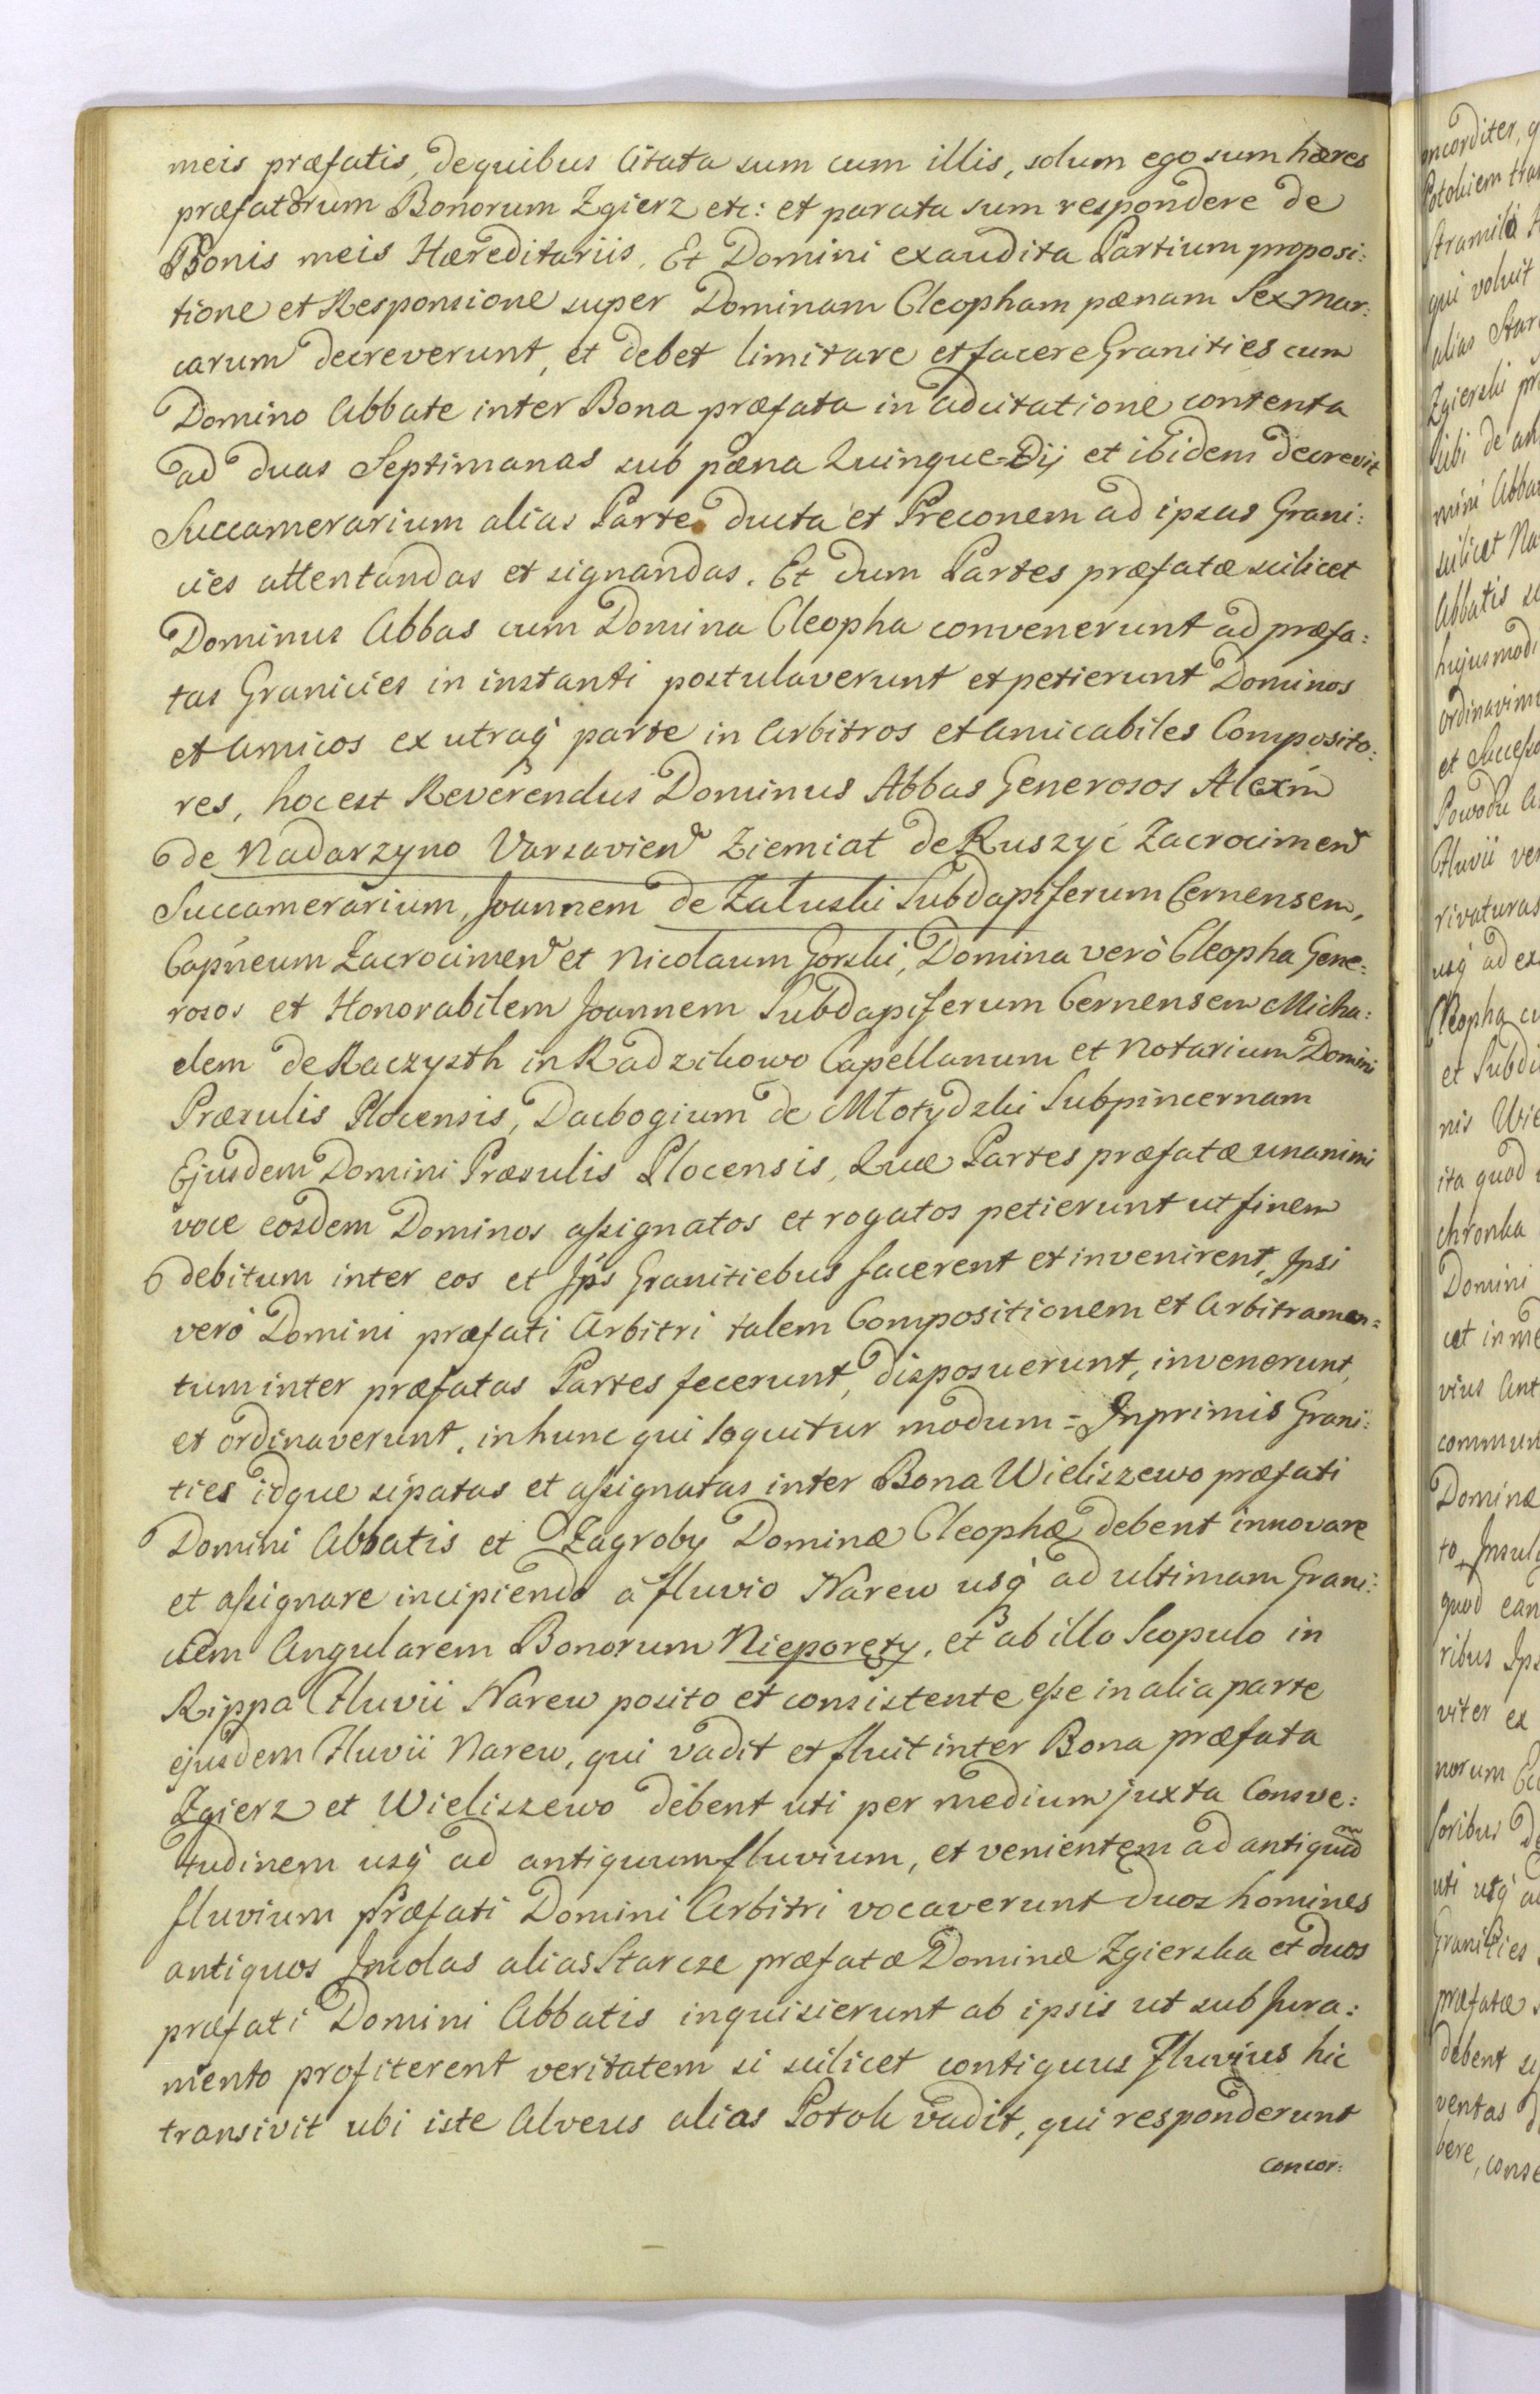 meis præfatis, de quibus Citata sum cum illis, solum ego sum hæres
præfatorum Bonorum Zgierz etc: et parata sum respondere de
Bonis meis Hæreditariis. Et Domini exaudita Partium proposi:
tione et Responsione super Dominam Cleopham pænam Sex Mar:
carum decreverunt, et debet limitare et facere Granities cum
Domino Abbate inter Bona præfata in adcitatione contenta
ad duas Septimanas sub pæna Quinque et ibidem decrevit
Succamerarium alias Parte ducta et Preconem ad ipsas Grani:
cies attentandas et signandas. Et dum Partes præfatæ scilicet
Dominus Abbas cum Domina Cleopha convenerunt ad præfa:
tas Granicies in instanti postulaverunt et petierunt Dominos
et Amicos ex utraq̃ parte in Arbitros et Amicabiles Composito:
res, hoc est Reverendus Dominus Abbas Generosos Alexm̃
de Nadarzyno Varsavien Ziemiat de Ruszyc Zacrocimen
Succamerarium, Joannem de Zaluski Subdapiferum Cernensem,
Capneum Zacrocimen et Nicolaum Gorski, Domina verò Cleopha Gene:
rosos et Honorabilem Joannem Subdapiferum Cernensem Micha:
elem de Raczyszth in Radzikowo Capellanum et Notarium Domini
Præsulis Plocensis, Dacbogium de Młotydzki Subpincernam
Ejusdem Domini Præsulis Plocensis, Quæ Partes præfatæ unanimi
voce eosdem Dominos assignatos et rogatos petierunt ut finem
debitum inter eos et Jps Granitiebus facerent et invenirent, Jpsi
verò Domini præfati Arbitri talem Compositionem et Arbitramen=
tum inter præfatas Partes fecerunt, disposuerunt, invenerunt,
et ordinaverunt, in hunc qui sequitur modum = Jnprimis Grani:
ties idque sipatas et assignatas inter Bona Wieliszewo præfati
Domini Abbatis et Zagroby Dominæ Cleophæ debent innovare
et assignare incipiendo à fluvio Narew usq̃ ad ultimam Grani:
ciem Angularem Bonorum Nieporęty, et ab illo Scopulo in
Rippa Fluvii Narew posito et consistente esse in alia parte
ejusdem Fluvii Narew, qui vadit et fluit inter Bona præfata
Zgierz et Wieliszewo debent uti per medium juxta Consve:
tudinem usq̃ ad antiquum fluvium, et venientem ad antiquum
fluvium Præfati Domini Arbitri vocaverunt duos homines
antiquos Jncolas alias Starcze præfatæ Dominæ Zgierska et duos
præfati Domini Abbatis inquisierunt ab ipsis ut sub Jura:
mento profiterent veritatem si scilicet contiguus Fluvius hic
transivit ubi iste Alveus alias Potok vadit, qui responderunt
concor: